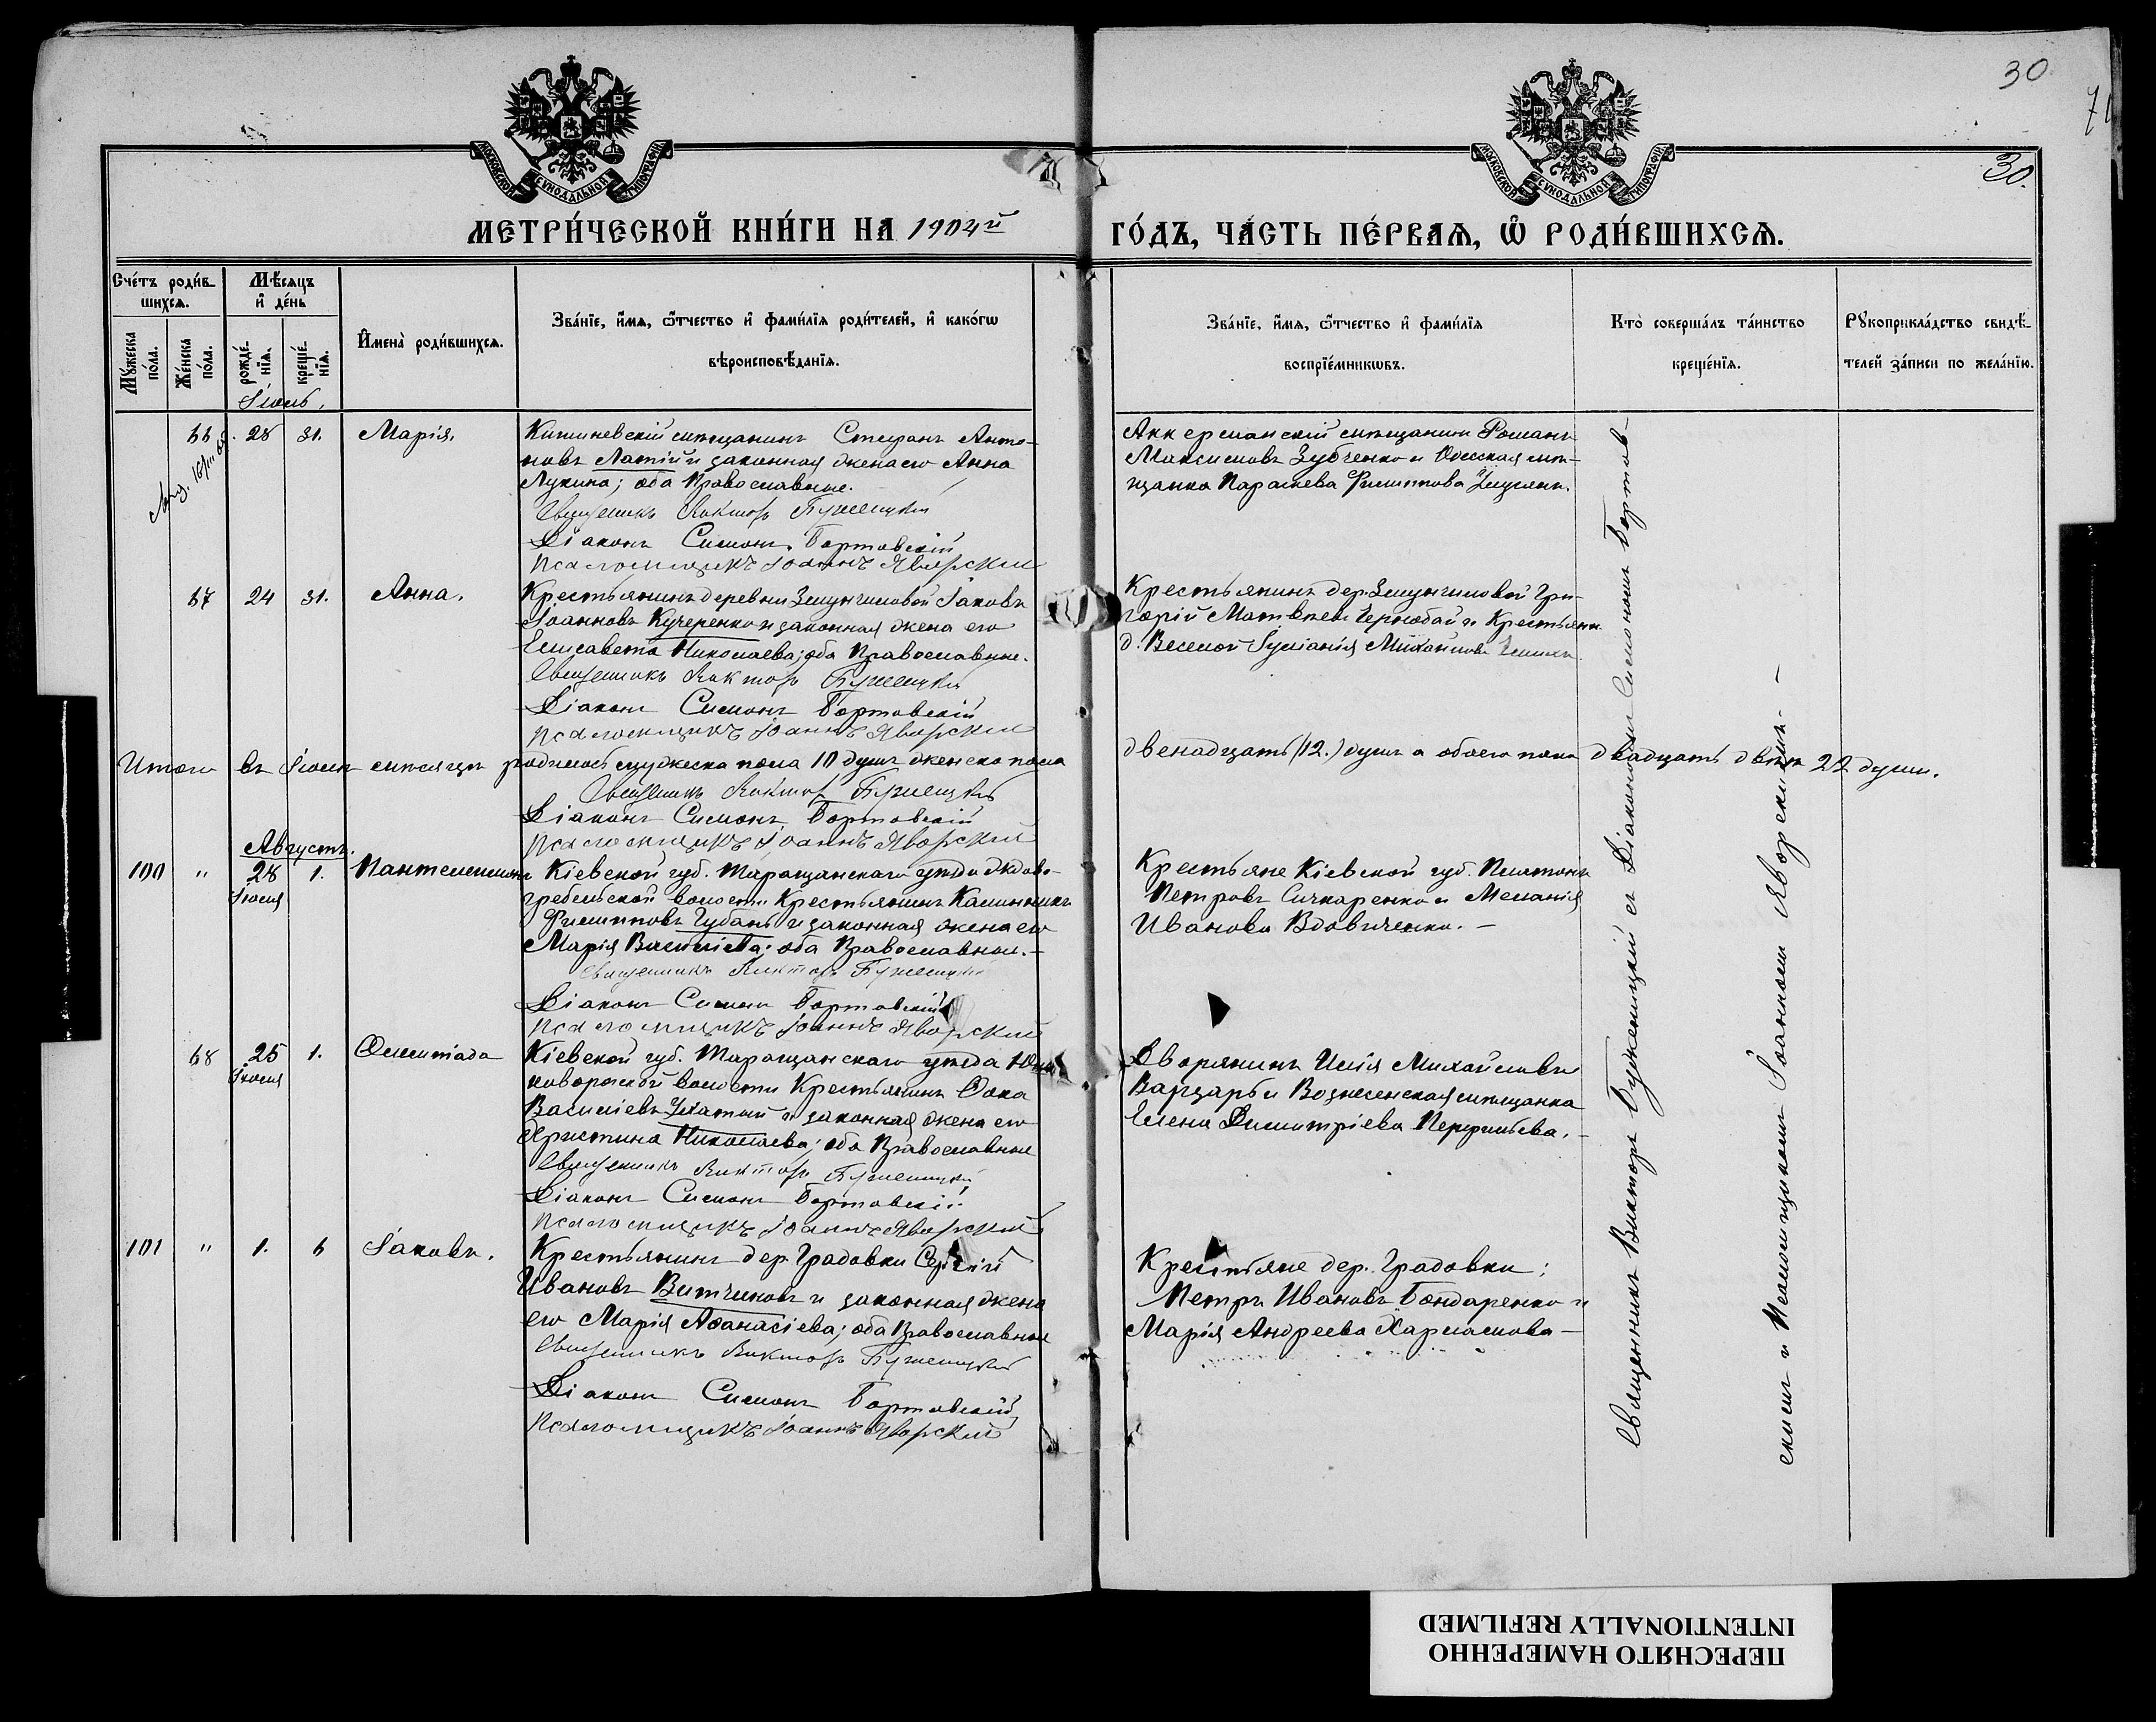 30
30.
МОСКОВСКОЙ СѴНОДАЛЬНОЙ ТИПОГРАФІИ
МОСКОВСКОЙ СѴНОДАЛЬНОЙ ТИПОГРАФІИ
МЕТРИ́ЧЕСКОЙ КНИ́ГИ НА 1904й ГО́ДЪ, ЧА́СТЬ ПЕ́РВАѦ, Ѡ РОДИ́ВШИХСѦ.
Сче́тъ роди́в-
шихсѧ.
Мѣ́сѧцъ
и де́нь
Му́жеска по́ла.
Же́нска по́ла.
рожде́-
нїѧ.
креще́-
нїѧ.
Имена̀ роди́вшихсѧ.
Зва́нїе, и́мѧ, ѻ́тчество и фами́лїѧ роди́телей, и како́гѡ
вѣроисповѣ́данїѧ.
Зва́нїе, и́мѧ, ѻ́тчество и фами́лїѧ
воспрїе́мникѡвъ.
Кто̀ соверша́лъ та́инство
креще́нїѧ.
Рꙋкоприкла́дство свидѣ́-
телей за́писи по жела́нїю.
Іюль.
66. 28 31. Марія.
Кишиневскій мѣщанинъ Стефанъ Анто-
новъ Латій и законная жена его Анна
Лукина; оба Православные.
Священникъ Викторъ Бужницкій
Діаконъ Симонъ Бортовскій
Псаломщикъ Іоаннъ Яворскій
Аккерманскій мѣщанинъ Романъ
Максимовъ Зубченко и Одесская мѣ-
щанка Параскева Филиппова
67 24 31. Анна.
Крестьянинъ деревни Іаковъ
Іоанновъ Кучеренко и законная жена его
Елисавета Николаева; оба Православные.
Священникъ Викторъ Бужницкій
Діаконъ Симонъ Бортовскій
Псаломщикъ Іоаннъ Яворскій
Крестьянинъ дер. Гри-
горій Матвѣевъ Чернобай и Крестьянк.
д. Веселой Іуліанія Михайлова
Итого въ Іюлѣ мѣсяцѣ родилось мужеска пола 10 душъ женска пола двенадцать (12.) душъ а обоего пола двадцать двѣ 22 души.
Священникъ Викторъ Бужницкій
Діаконъ Симонъ Бортовскій
Псаломщикъ Іоаннъ Яворскій
Августъ.
100 " 28 Іюля 1. Пантелеимонъ
Кіевской губ. Таращанскаго уѣзда Жидово-
гребельской волости Крестьянинъ Калинникъ
Филипповъ Губань и законная жена его
Марія Василіева; оба Православные.—
Священникъ Викторъ Бужницкій
Діаконъ Симонъ Бортовскій
Псаломщикъ Іоаннъ Яворскій
Крестьяне Кіевской губ. Платонъ
Петровъ Сичкаренко и Меланія
Иванова Вдовиченко.—
68 25 Іюля 1. Олимпіада
Кіевской губ. Таращанскаго уѣзда
волости Крестьянинъ Фока
Василіевъ и законная жена его
Христина Николаева; оба Православные
Священникъ Викторъ Бужницкій
Діаконъ Симонъ Бортовскій
Псаломщикъ Іоаннъ Яворскій
Дворянинъ Илія Михайловъ
Варзарь и Вознесенская мѣщанка
Елена Димитріева Перфильева.—
101 " 1. 6 Іаковъ.
Крестьянинъ дер. Градовки Сергій
Ивановъ и законная жена
его Марія Аѳанасіева; оба Православные
Священникъ Викторъ Бужницкій
Діаконъ Симонъ Бортовскій
Псаломщикъ Іоаннъ Яворскій
Крестьяне дер. Градовки:
Петръ Ивановъ Бондаренко и
Марія Андреева Харламова—
Священникъ Викторъ Бужницкій съ Діакономъ Симономъ Бортов-
скимъ и Псаломщикомъ Іоанномъ Яворскимъ.—
ПЕРЕСНЯТО НАМЕРЕННО
INTENTIONALLY REFILMED